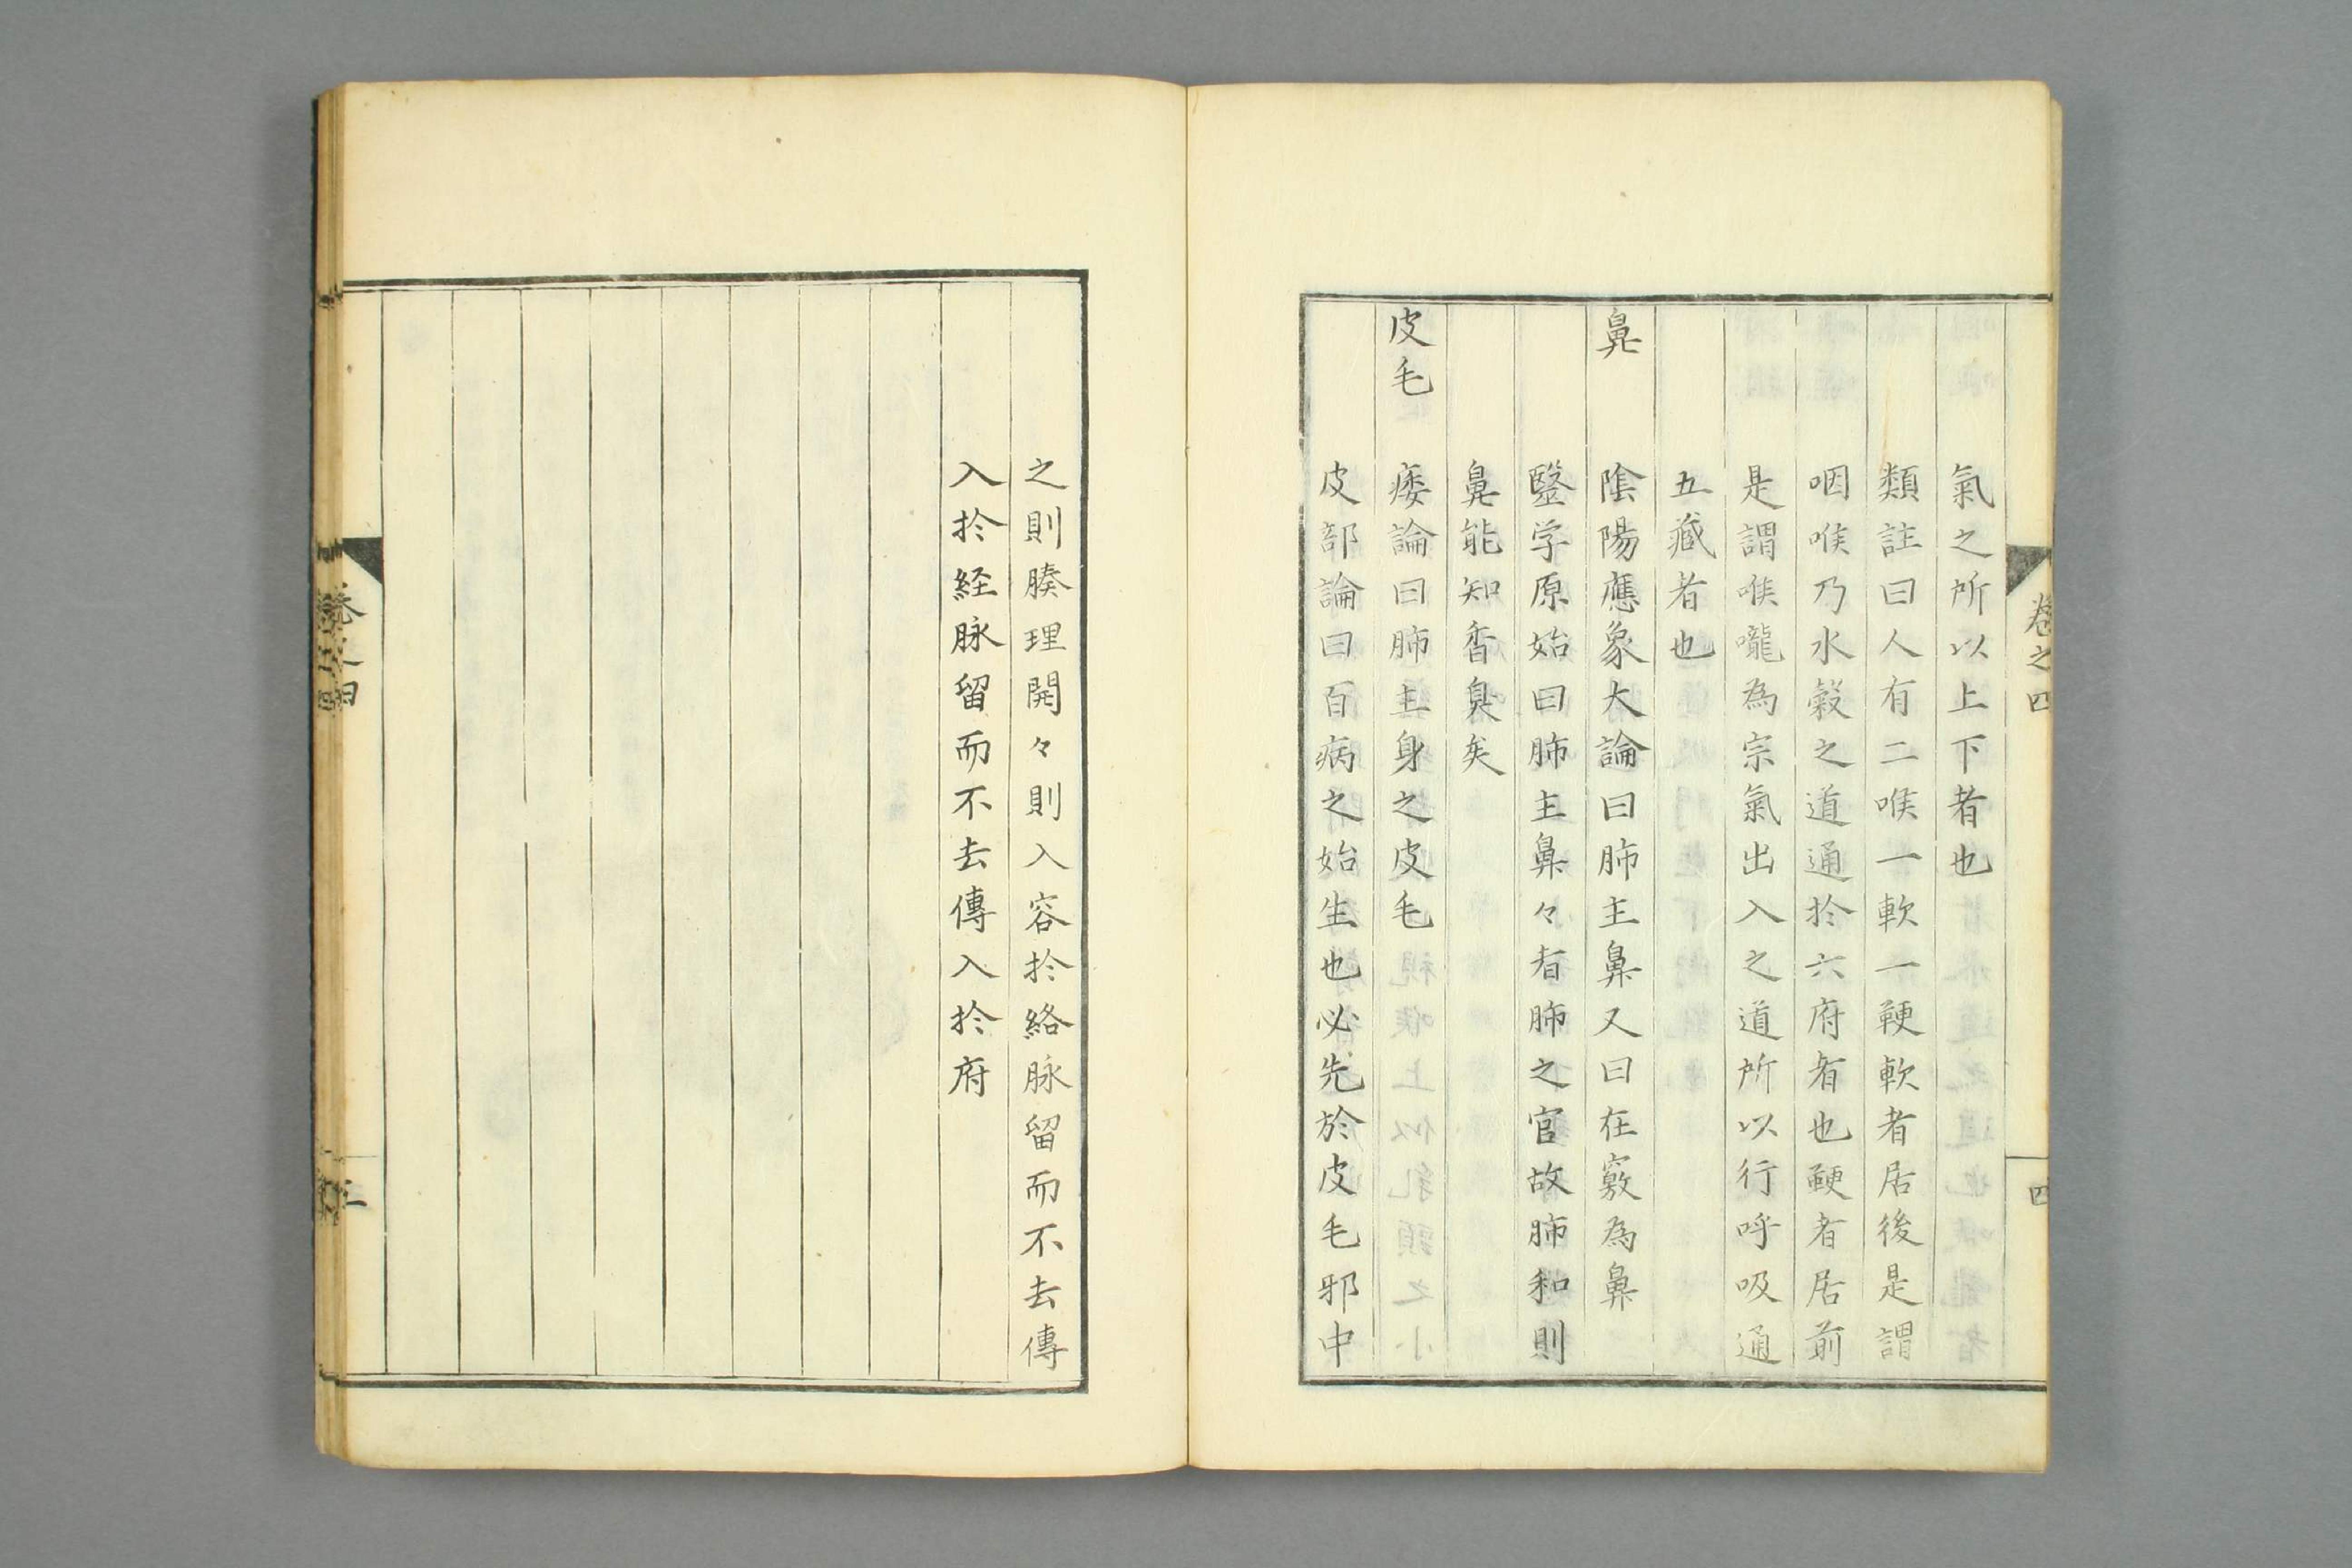 卷之四
四
氣之所以上下者也
類註曰人有二喉一軟一鞕軟者居後是謂
咽喉乃水穀之道通扵六府者也鞕者居前
是謂喉嚨為宗氣出入之道所以行呼吸通
五藏者也
鼻　陰陽應象大論曰肺主鼻又曰在竅為鼻
毉学原始曰肺主鼻々者肺之官故肺和則
鼻能知香臭矣
皮毛　痿論曰肺主身之皮毛
皮部論曰百病之始生也必先於皮毛邪中
之則腠理開々則入容扵絡脉留而不去傳
入扵経脉留而不去傳入扵府